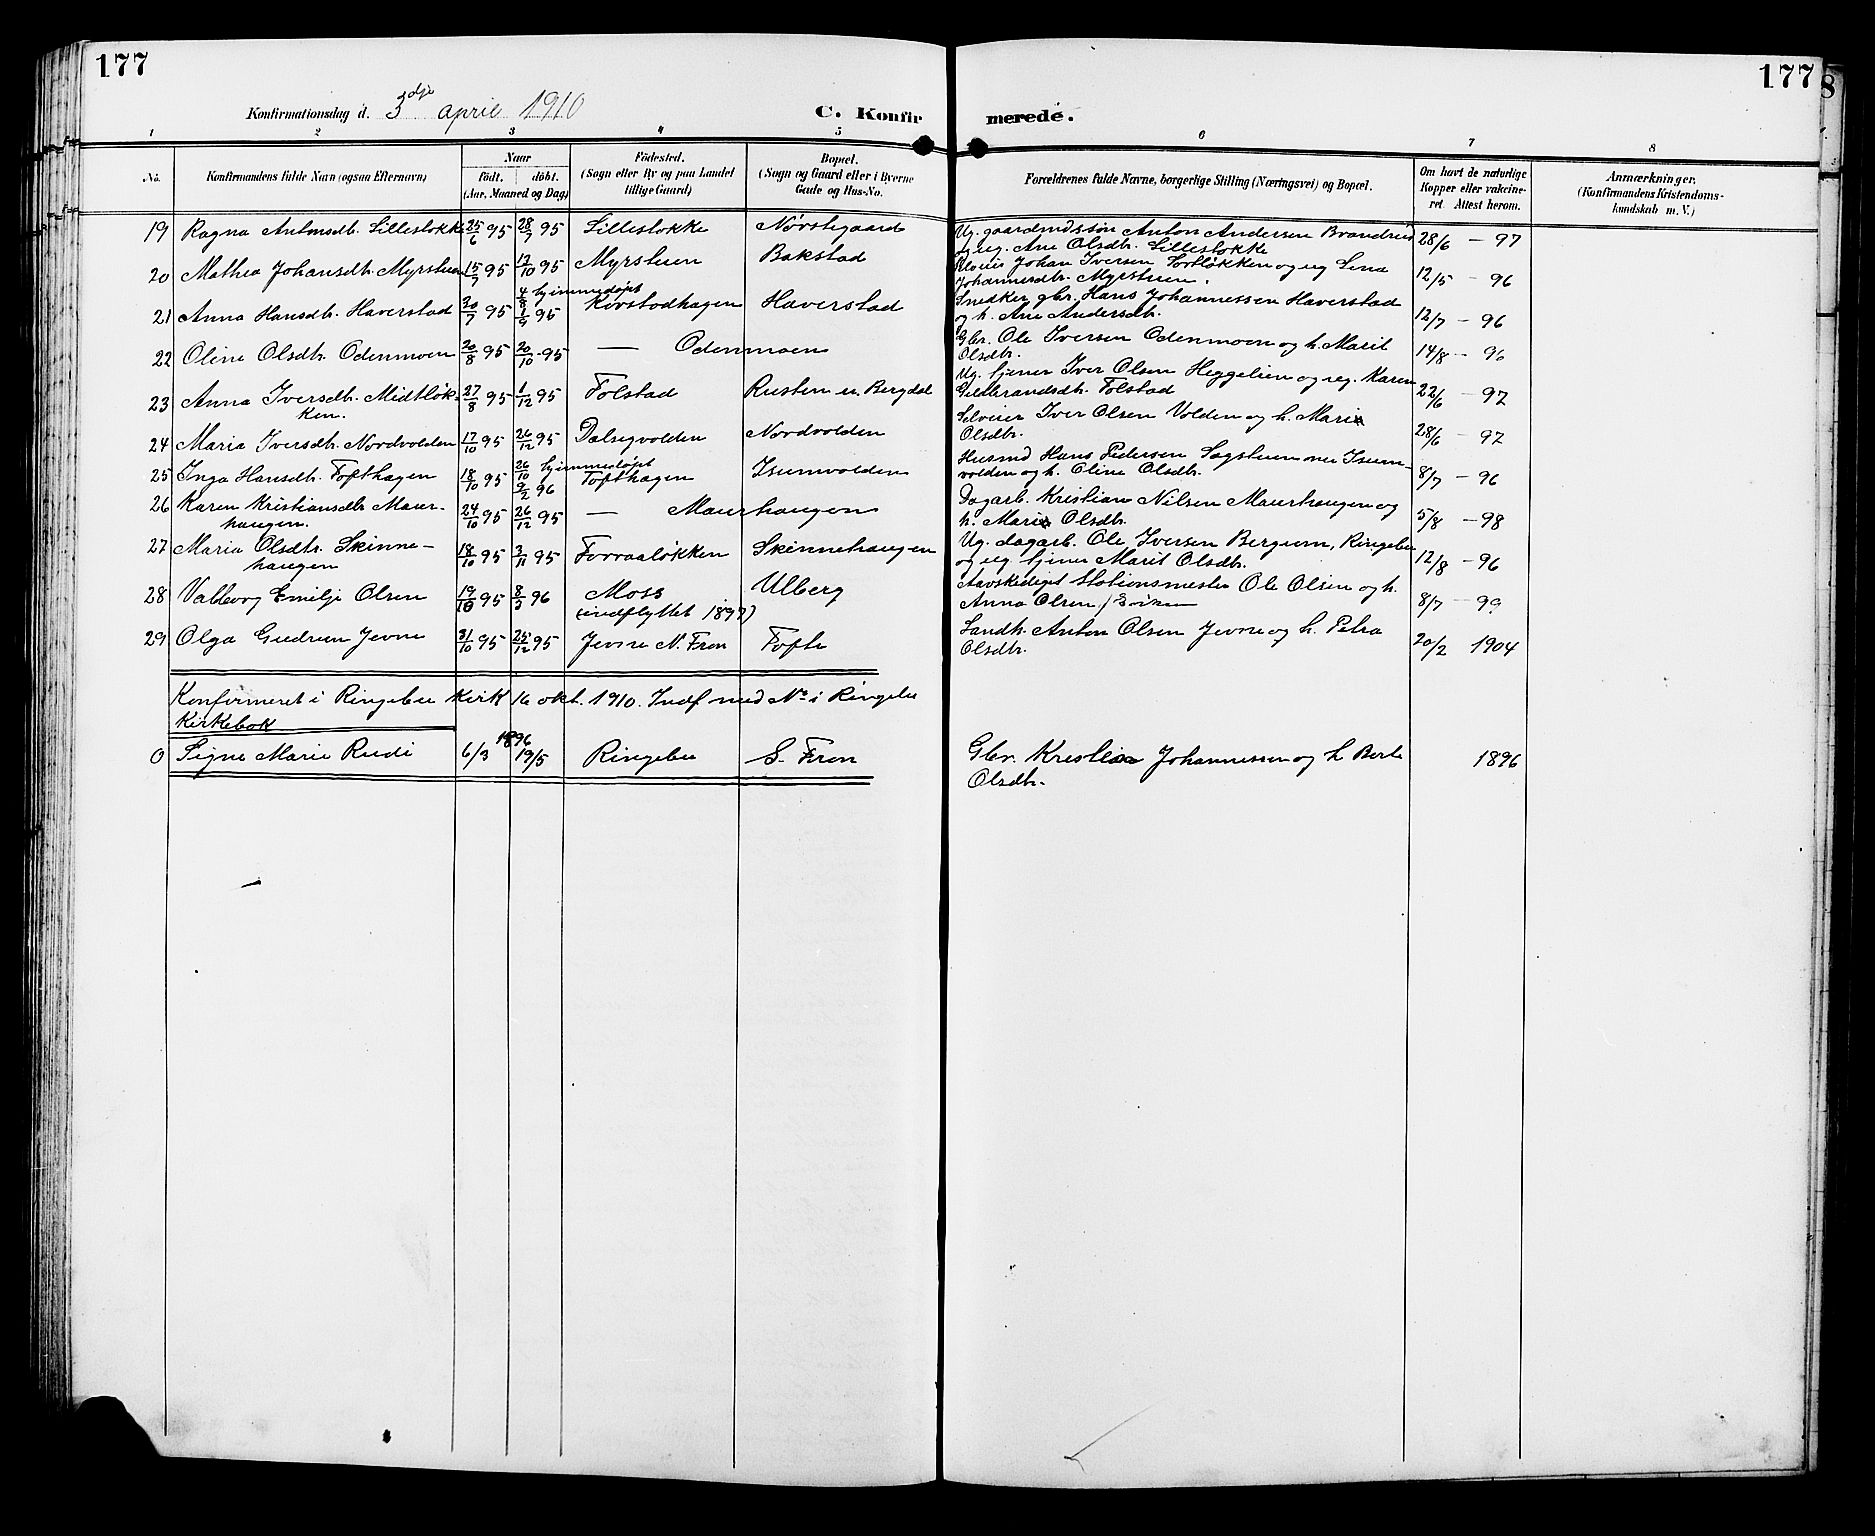 177
177
8
Konfirmationsdag d. 3dje april 1910
C. Konfirmerede.
1 2 3 4 5 6 7 8
No. Konfirmandens fulde Navn (ogsaa Efternavn) Naar Födt. döbt. (Aar, Maaned og Dag) Födested. (Sogn eller By og paa Landet tillige Gaard) Bopæl. (Sogn og Gaard eller i Byerne Gade og Hus-No. Forældrenes fulde Navne, borgerlige Stilling (Næringsvei) og Bopæl. Om havt de naturlige Kopper eller vakcineret. Attest herom. Anmærkninger. (Konfirmandens Kristendomskundskab m. V.)
19 Ragna Antonsdtr. Lillestokke 25/6 95 28/7 95 Lillestokke Nørstegaard Ug. gaardmdssøn Anton Andersen Brandrud 28/6 - 97
og ug. Ane Olsdtr. Lillestokke
20 Mathea Johansdtr. Myrstuen 15/7 95 13/10 95 Myrstuen Bakstad Johan Iversen Sortløkken og ug Lena 12/5 96
Johannesdtr. Myrstuen.
21 Anna Hansdtr. Haverstad 20/7 95 4/8 hjimmedøpt 1/9 95 Kirstadhagen Haverstad Snedker gbr. Hans Johannessen Haverstad 12/7 - 96
og h. Ane Andersdtr.
22 Oline Olsdtr. Odenmoen 20/8 95 20/10 95 — Odenmoen Gbr. Ole Iversen Odenmoen og h. Marit 14/8 - 96
Olsdtr.
23 Anna Iversdtr. Midtløk- 27/8 95 1/12 95 Tolstad Rusten u. Bergdal Ug. tjener Iver Olsen Heggelien og ug. Karen 22/6 - 97
ken. Gulbrandsdtr. Tolstad
24 Maria Iversdtr. Nordvolden 17/10 95 26/12 95 Dalsegvolden Nordvolden Selveier Iver Olsen Volden og h. Mari 28/6 - 97
Olsdtr.
25 Inga Hansdtr. Tofthagen 18/10 95 26/10 hjimmedøpt 9/2 96 Tofthagen Isumvolden Husmd Hans Pedersen Sagstuen nu Isum- 8/7 - 96
volden og h. Oline Olsdtr.
26 Karen Kristiansdtr Maur- 24/10 95 26/12 95 — Maurhaugen Dagarb. Kristian Nilsen Maurhaugen og 5/8 - 98
haugen. h. Mari Olsdtr.
27 Maria Olsdtr. Skinne- 18/10 95 3/11 95 Forraaløkken Skinnehaugen Ug. dagarb. Ole Iversen Bergum, Ringebu 12/8 - 96
haugen og ug. tjener Marit Olsdtr.
28 Valborg Emilje Olsen 19/10 95 8/3 96 Moss Ulberg Aavskediget Stationsmester Ole Olsen og h. 8/7 - 99
(indflyttet 1897) Anna Olsen
29 Olga Gudrun Jevne 31/10 95 25/12 95 Jevne N. Fron Tofte Landh. Anton Olsen Jevne og h. Petra 20/2 1904
Olsdtr.
Konfirmeret i Ringebu kirk 16 okt. 1910. Indf med No i Ringebu
kirkebok
0 Signe Marie Rudi 6/3 1896 19/5 Ringebu S. Fron Gbr. Kristian Johannessen og h Berte 1896
Olsdtr.